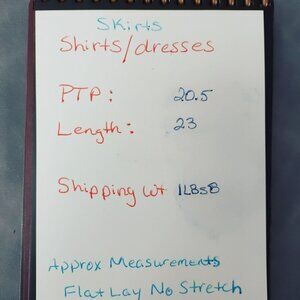 Skirts
Shirts/dresses
PTP: 20.5
Length: 23
Shipping wt 1LBS8
Approx Measurements
Flat Lay No Stretch